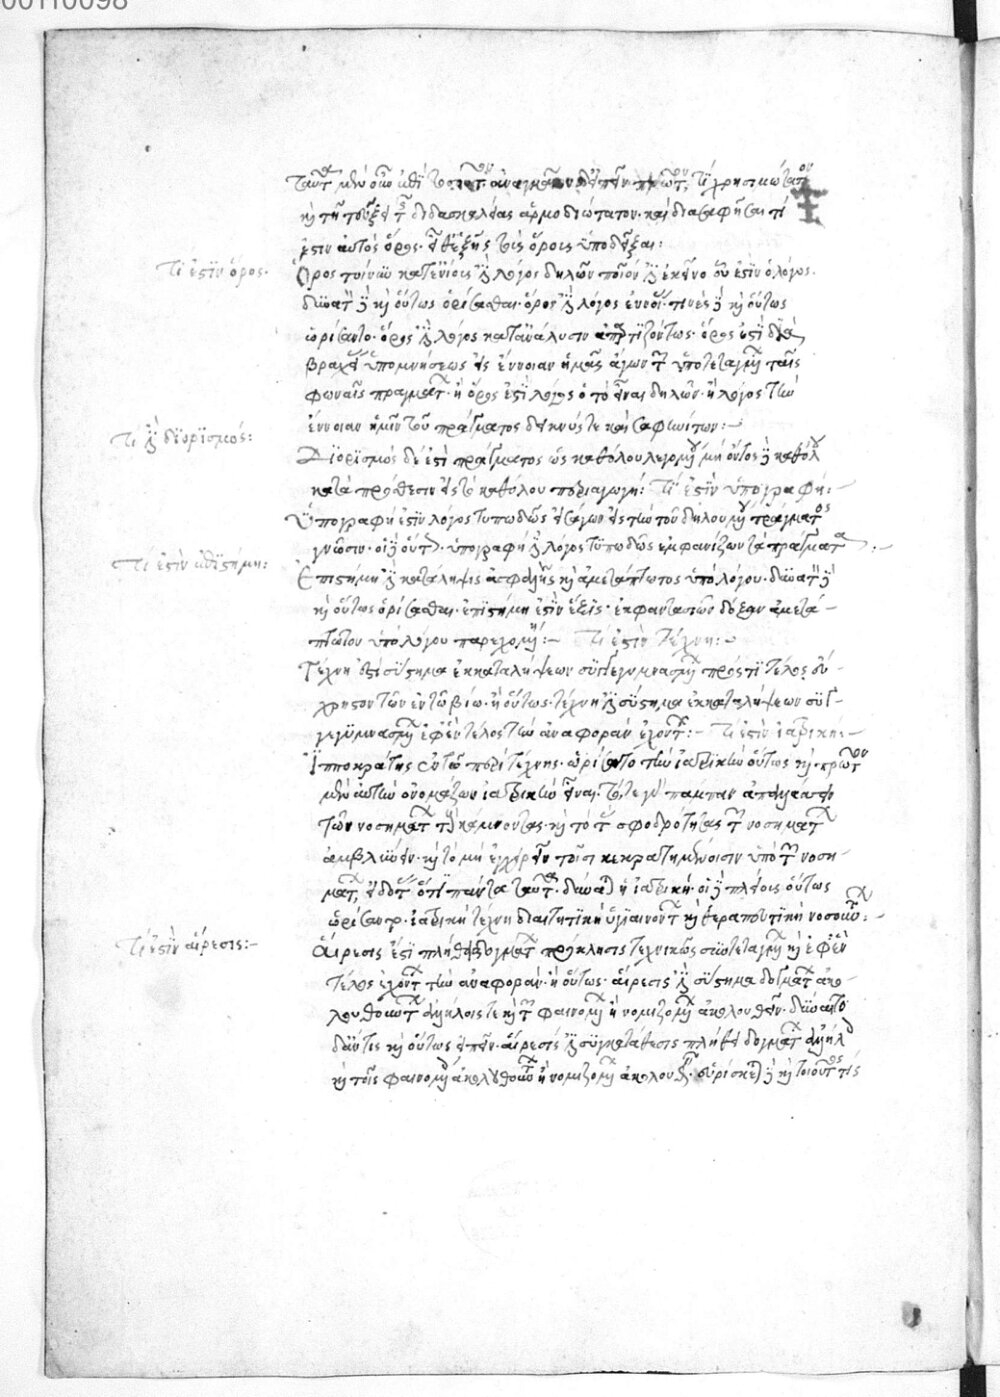 00110098
κ(αὶ) τῆ τοῦ ἑξῆς διδασκαλίας ἁρμοδιώτατον· καὶ διασαφῆσαι τί
ἐστιν αὐτὸς ὅρος· εἶθ' ἑξῆς τοῖς ὅροις ὑποδεῖξαι:
Τί ἐστὶν ὅρος.
Ὅρος τοίνυν κατ' ἐνίους ἐστὶ λόγος δηλῶν ποῖόν ἐστι ἐκεῖνο οὗ ἐστὶν ὁ λόγος.
δύναται δὲ κ(αὶ) οὕτως ὁρίσασθαι· ὅρος ἐστὶ λόγος τινὲς δὲ κ(αὶ) οὕτως
ὡρίσαντο· ὅρος ἐστὶ λόγος κατ' ἀνάλυσιν ἀπαρτιζόντως· ὅρος ἐστὶ διὰ
βραχείας ὑπομνήσεως εἰς ἔννοιαν ἡμᾶς ἄγων τῶν ὑποτεταγμένων ταῖς
φωναῖς πραγμάτων· ἢ ὅρος ἐστὶ λόγος ὁ τὸ εἶναι δηλῶν· ἢ λόγος τὴν
ἔννοιαν ἡμῖν τοῦ πράγματος δεικνύς τε καὶ σαφηνίζων:–
Τί ἐστι διορισμός:
Διορισμὸς δέ ἐστι πράγματος ὡς καθόλου λεγομένου μὴ ὄντος δὲ καθόλου
κατὰ πρόθεσιν εἰς τὸ καθόλου περιαγωγή: Τί ἐστὶν ὑπογραφή:–
Ὑπογραφή ἐστὶν λόγος τυπωδῶς εἰσάγων εἰς τὴν τοῦ δηλουμένου πράγματος
γνῶσιν· οἱ δὲ οὕτως· ὑπογραφή ἐστι λόγος τυπωδῶς ἐμφανίζων τὰ πράγματα:–
Τί ἐστὶν ἐπιστήμη:
Ἐπιστήμη ἐστὶ κατάληψις ἀσφαλὴς κ(αὶ) ἀμετάπτωτος ὑπὸ λόγου· δύναται δὲ
κ(αὶ) οὕτως ὁρίσασθαι· ἐπιστήμη ἐστὶν ἕξις· ἐκ φαντασιῶν δόξαν ἀμετά–
πτωτον ὑπὸ λόγου παρεχομένη:– Τί ἐστὶν τέχνη:–
Τέχνη ἐστὶ σύστημα ἐκ καταλήψεων συγγεγυμνασμένων πρός τι τέλος εὔ–
χρηστον τῶν ἐν τῷ βίῳ· ἢ οὕτως· τέχνη ἐστὶ σύστημα ἐκ καταλήψεων συγ–
γεγυμνασμένων ἐφ' ἓν τέλος τὴν ἀναφορὰν ἐχόντων:– Τί ἐστὶν ἰατρική:–
Ἱπποκράτης ἐν τῷ περὶ τέχνης· ὡρίσατο τὴν ἰατρικὴν οὕτως κ(αὶ) πρῶτον
μὲν αὐτὴν ὀνομάζων ἰατρικὴν εἶναι· τό, τε δὴ πάμπαν ἀπαλλάσσειν
τῶν νοσημάτων τοὺς κάμνοντας· κ(αὶ) τὸ τὰς σφοδρότητας τῶν νοσημάτων
ἀμβλύνειν· κ(αὶ) τὸ μὴ ἐγχειρεῖν τοῖσι κεκρατημένοισιν ὑπὸ τῶν νοση–
μάτων, εἰδότας ὅτι πάντα ταῦτα δύναται ἡ ἰατρική· οἱ δὲ πλείους οὕτως
ὡρίσαντο· ἰατρικὴ τέχνη διαιτητικὴ ὑγιαινόντων κ(αὶ) θεραπευτικὴ νοσούντων:–
Τί ἐστὶν αἵρεσις:–
Αἵρεσις ἐστὶ πλήθους δογμάτων πρόκλησις τεχνικῶς συντεταγμένων κ(αὶ) ἐφ' ἓν
τέλος ἐχόντων τὴν ἀναφοράν· ἢ οὕτως· αἵρεσις ἐστὶ σύστημα δογμάτων ἀκο–
λουθούντων ἀλλήλοις τε κ(αὶ) τῶν φαινομένων ἢ νομιζομένων ἀκολουθεῖν· δύναιτο
δ' ἄν τις κ(αὶ) οὕτως εἰπεῖν· αἵρεσις ἐστὶ συγκατάθεσις πλήθει δογμάτων ἀλλήλοις
κ(αὶ) τοῖς φαινομένοις ἀκολουθούντων ἢ νομιζομένων ἀκολουθεῖν· εὑρίσκεται δὲ κ(αὶ) τοιοῦτός τις